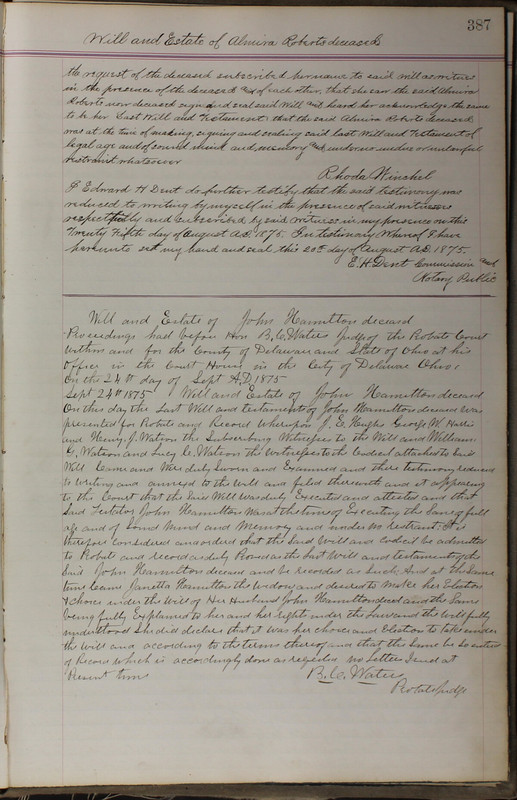 387
Will and Estate of Almira Roberts deceased
the request of the deceased subscribed her name to said will as witness
in the presence of the deceased and of each other, that she saw the said Almira
Roberts now deceased sign and seal said Will and heard her acknowledge the same
to be her Last Will and Testament that the said Almira Roberts deceased
was at the time of making, signing and sealing said Last Will and Testament of
legal age and of sound mind and memory and under no undue or unlawful
restraint whatever
Rhoda Winchel
I Edward H Dent do further testify that the said testimony was
reduced to writing by myself in the presence of said witness
respectfully and subscribed by said witness in my presence on this
Twenty Fifth day of August A.D. 1875. In testimony Whereof I have
hereunto set my hand and seal this 20th day of August A.D. 1875.
E. H. Dent Commission and
Notary Public
Will and Estate of John Hamilton deceased
Proceedings had before Hon B. C. Waters Judge of the Probate Court
within and for the County of Delaware and State of Ohio at his
office in the Court House in the City of Delaware Ohio:
On the 24th day of Sept A,D, 1875
Sept 24th 1875 Will and Estate of John Hamilton deceased
On this day the Last Will and testament of John Hamilton deceased was
presented for Probate and Record whereupon J. E. Hughs George W. Harris
and Henry J. Watson the Subscribing Witnesses to the Will and William
G. Watson and Lucy C. Watson the Witnesses to the Codicil attached to Said
Will Came and Were duly Sworn and Examined and there testimony reduced
to Writing and annexed to the Will and filed therewith and it appearing
to the Court that the Said Will was duly Executed and attested and that
Said Testator John Hamilton was at the time of Executing the Same of full
age and of Sound Mind and Memory and under no restraint. It is
therefore Considered and ordered that the Said Will and Codicil be admitted
to Probate and record as duly Proved as the Last Will and testament of the
Said John Hamilton deceased and be recorded as Such. And at the Same
time Came Janetta Hamilton the Widow and desired to Make her Election
& choice under the Will of Her Husband John Hamilton deceased and the Same
being fully Explained to her and her rights under the Law and the Will fully
understood She did declare that it was her choice and Election to take under
the Will and according to the terms thereof and that the Same be So entered
of Record which is accordingly done as required no Letters Issued at
Present time
B. C. Waters
Probate Judge